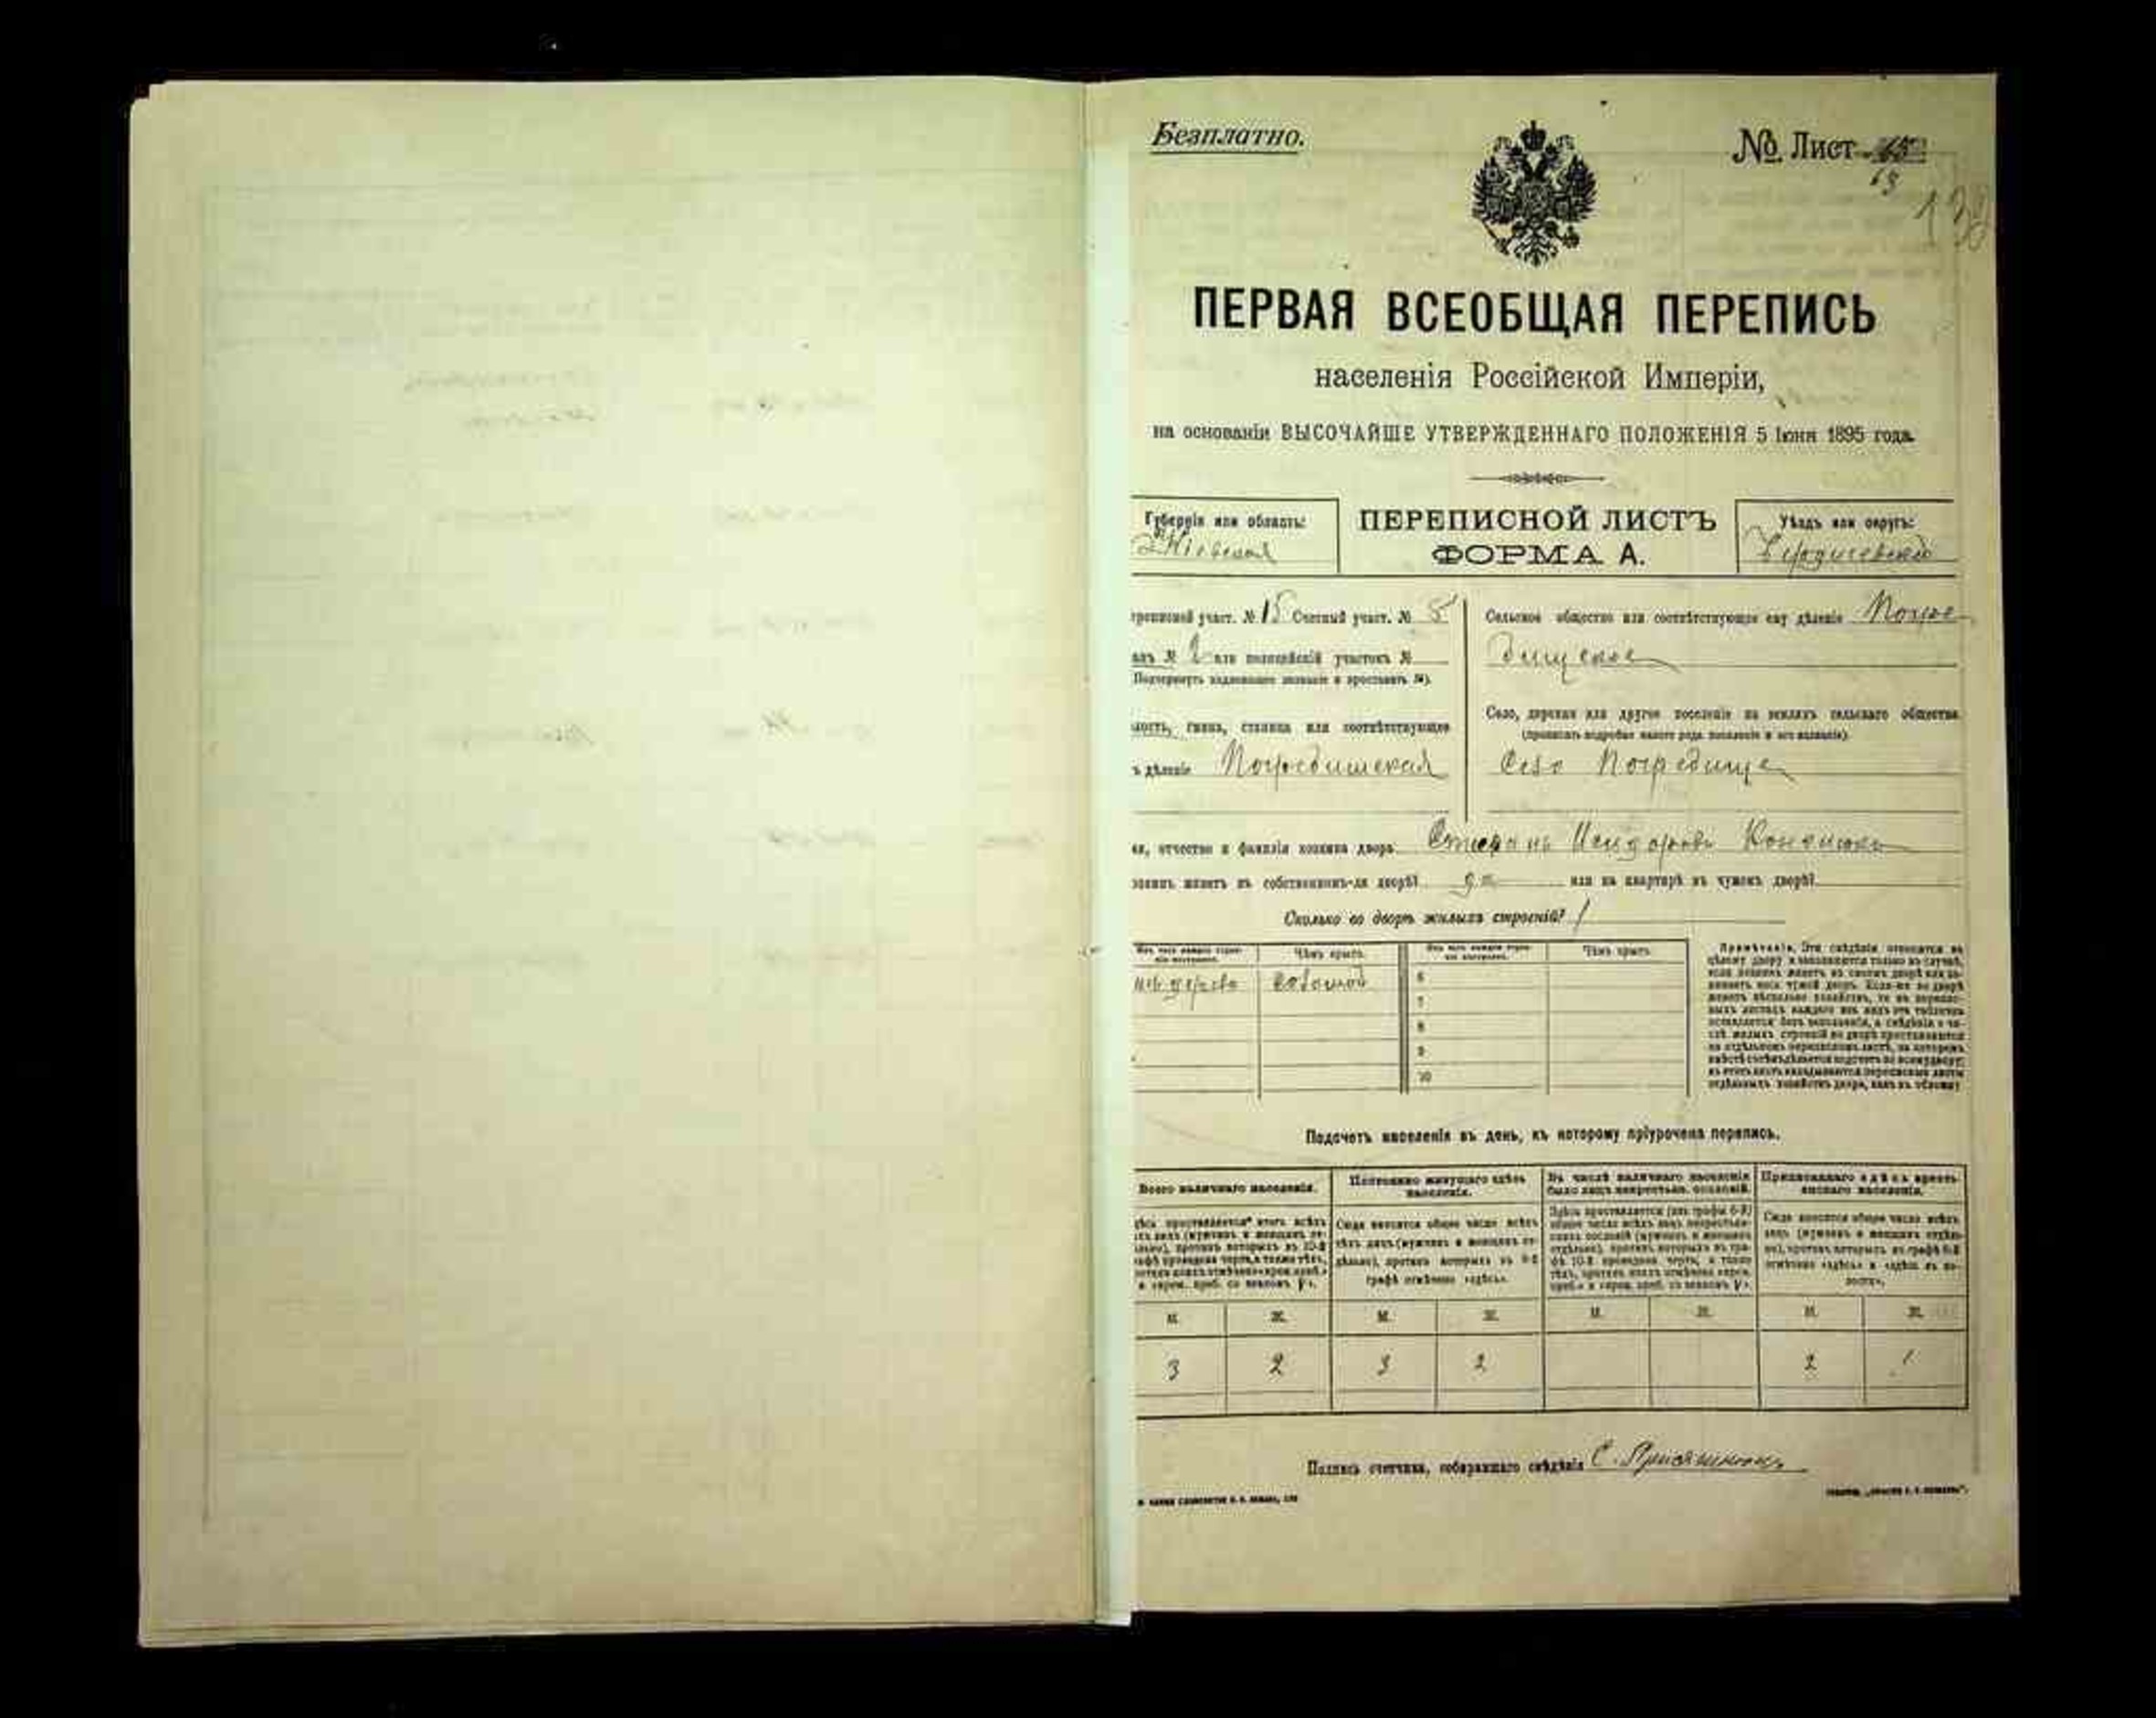 Безплатно.
№ Лист 15
13
138
ПЕРВАЯ ВСЕОБЩАЯ ПЕРЕПИСЬ
населенія Россійской Имперіи,
на основаніи ВЫСОЧАЙШЕ УТВЕРЖДЕННАГО ПОЛОЖЕНІЯ 5 Іюня 1895 года.
Губернія или область:
Кіевская
ПЕРЕПИСНОЙ ЛИСТЪ
ФОРМА А.
Уѣздъ или округъ:
Бердичевскій
реписной участ. № 15 Счетный участ. № 5
анъ № 2 или полицейскій участокъ №
(Подчеркнуть надлежащее названіе и проставить №).
ность, гмина, станица или соотвѣтствующее
ъ дѣленіе Погребищская
Сельское общество или соотвѣтствующее ему дѣленіе Погре-
бищское
Село, деревня или другое поселеніе на земляхъ сельскаго общества
(прописать подробно какого рода поселеніе и его названіе).
Село Погребище
мя, отчество и фамилія хозяина двора Степанъ Исидоровъ
озяинъ живетъ въ собственномъ-ли дворѣ? да или на квартирѣ въ чужомъ дворѣ?
Сколько во дворѣ жилыхъ строеній? 1
Изъ чего каждое строе-
ніе построено.
Чѣмъ крыто.
Изъ чего каждое строе-
ніе построено.
Чѣмъ крыто.
изъ дерева соломой
6
7
8
9
10
Примѣчаніе. Эти свѣдѣнія относятся къ
цѣлому двору и заполняются только въ случаѣ,
если хозяинъ живетъ въ своемъ дворѣ или за-
нимаетъ весь чужой дворъ. Если-же во дворѣ
живетъ нѣсколько хозяйствъ, то въ перепис-
ныхъ листахъ каждаго изъ нихъ эта табличка
оставляется безъ заполненія, а свѣдѣнія о чи-
слѣ жилыхъ строеній во дворѣ проставляются
на отдѣльномъ переписномъ листѣ, на которомъ
Подсчетъ населенія въ день, къ которому пріурочена перепись.
Всего наличнаго населенія.
Постоянно живущаго здѣсь
населенія.
Въ числѣ наличнаго населенія
было лицъ некрестьян. сословій.
Приписаннаго здѣсь кресть-
янскаго населенія.
Сюда вносится общее число всѣхъ
тѣхъ лицъ (мужчинъ и женщинъ от-
дѣльно), противъ которыхъ въ 9-й
графѣ отмѣчено «здѣсь».
Сюда вносится общее число всѣхъ
лицъ (мужчинъ и женщинъ отдѣль-
но), противъ которыхъ въ графѣ 8-й
отмѣчено «здѣсь» и «здѣсь въ во-
лости».
М. Ж. М. Ж. М. Ж. М. Ж.
3 2 3 2 2 1
Подпись счетчика, собиравшаго свѣдѣнія С.